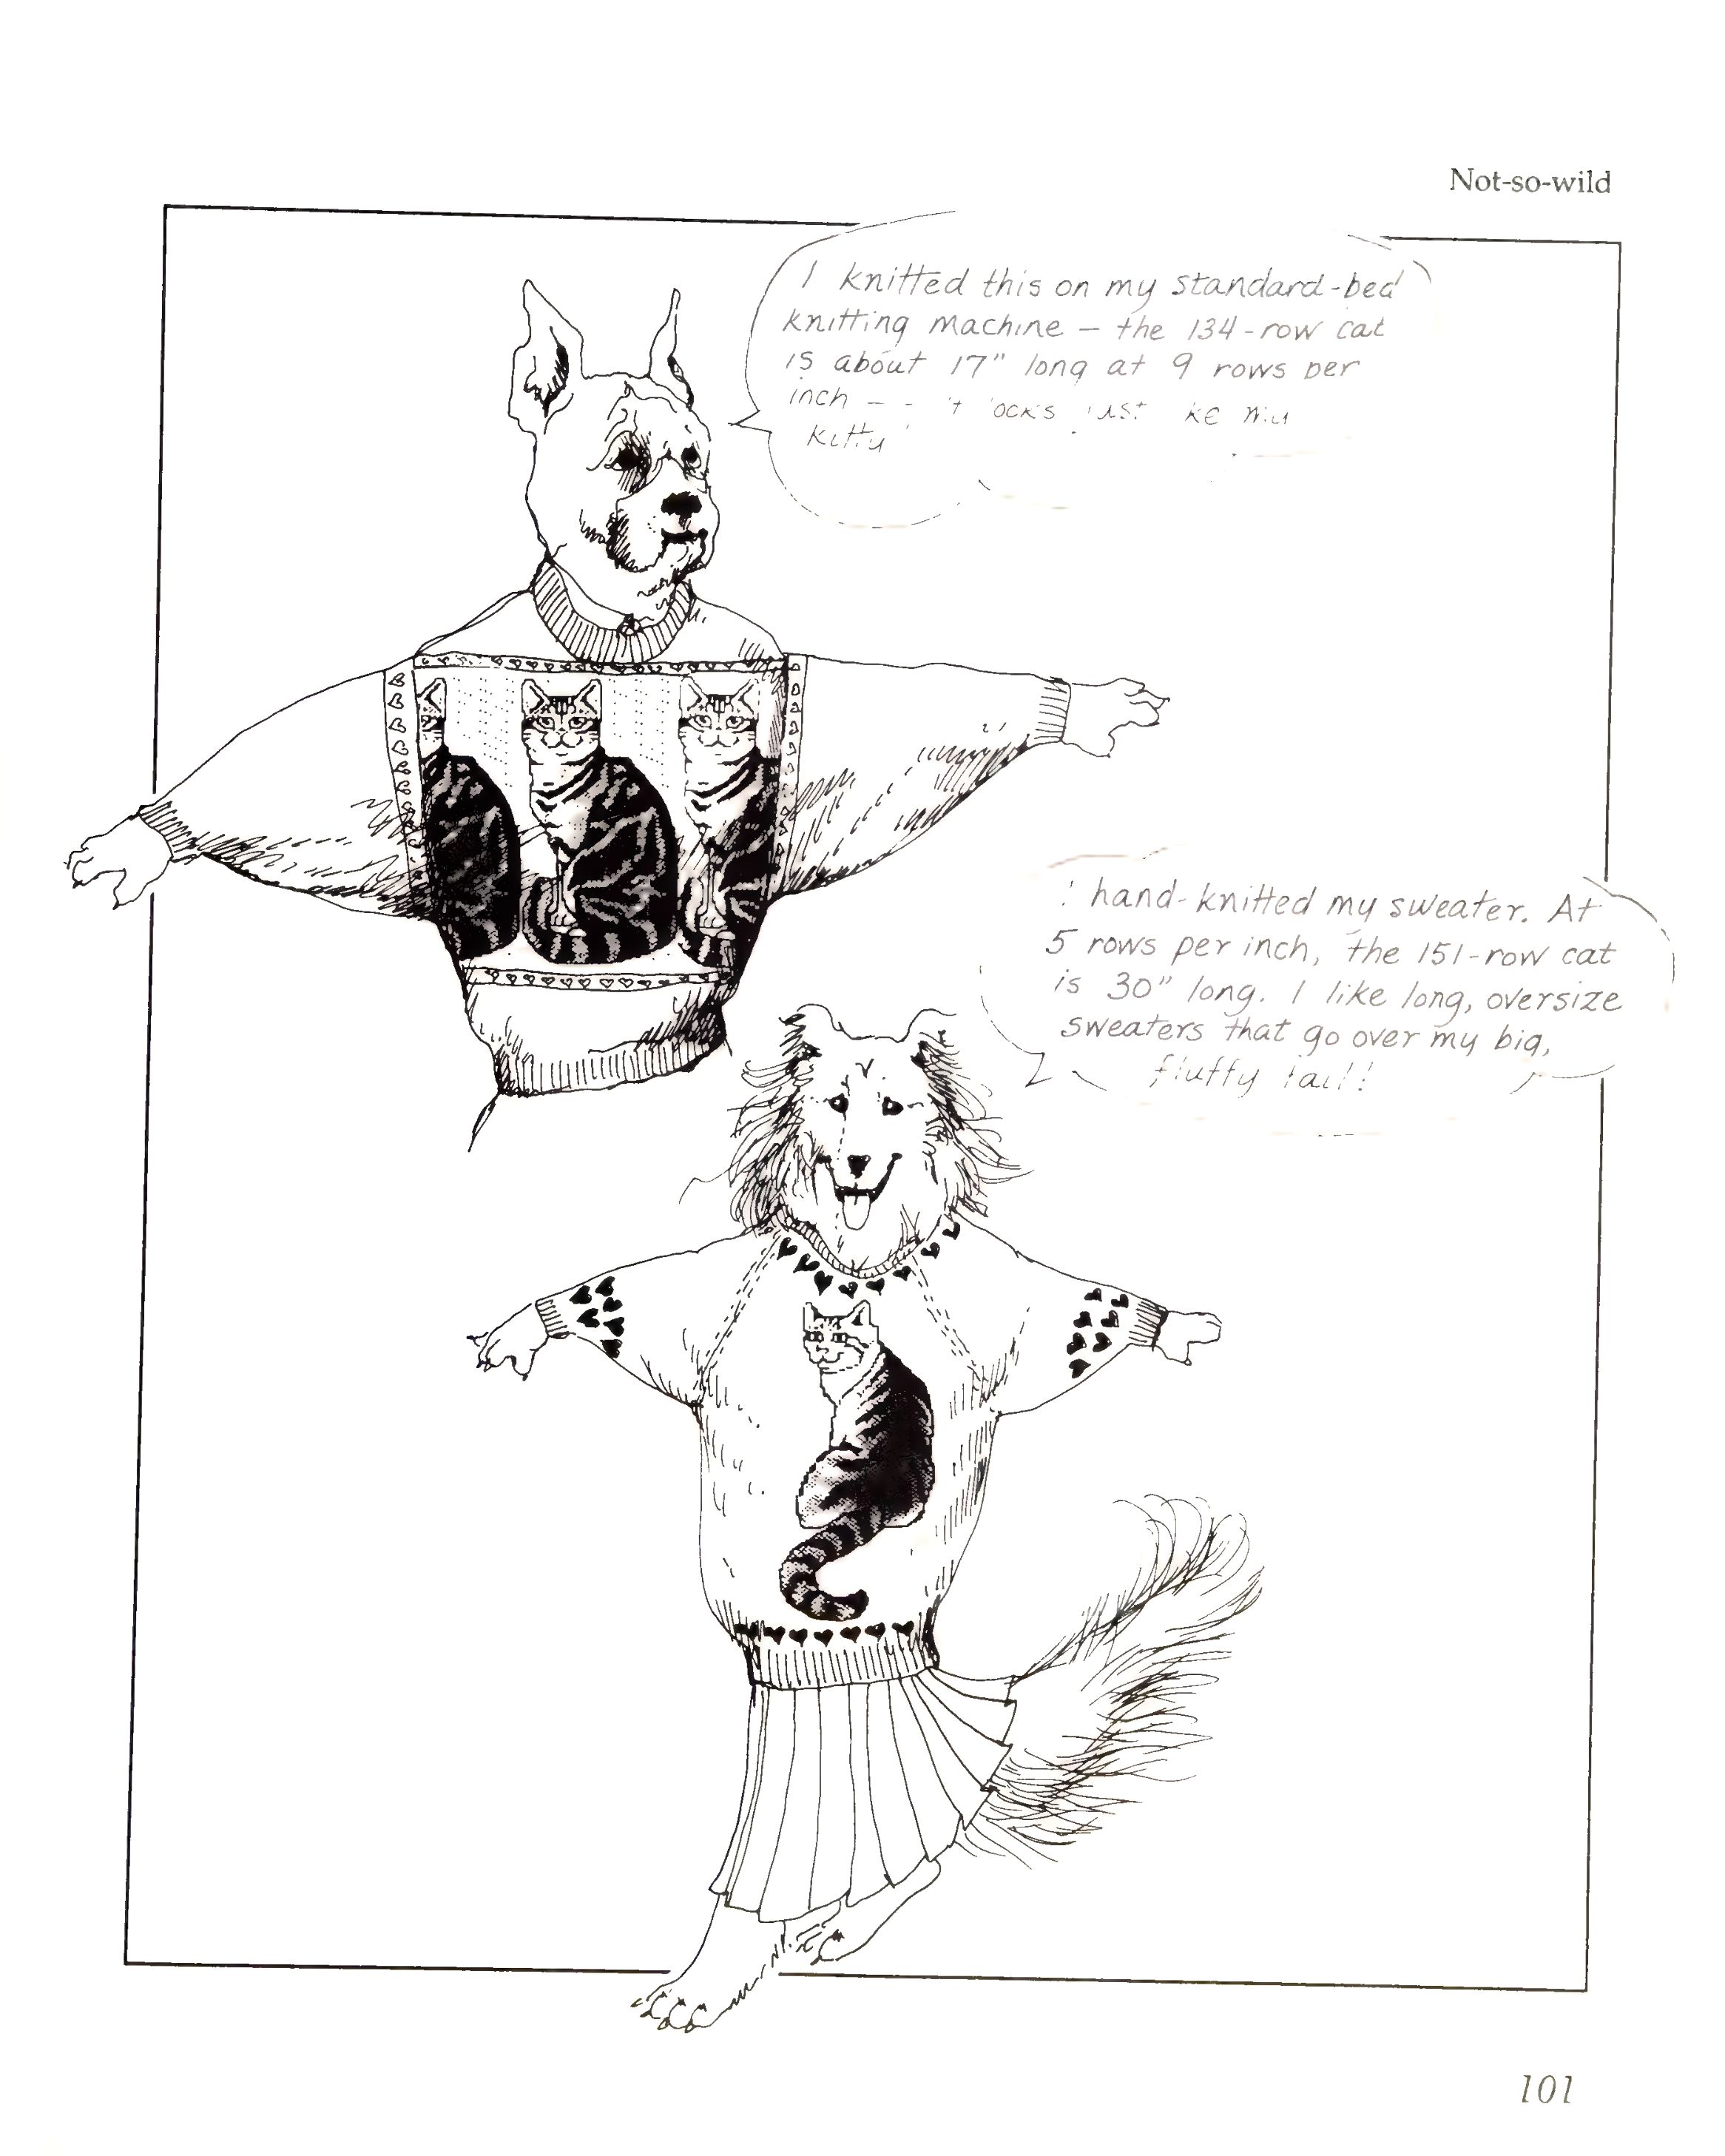 Not-so-wild
I knitted this on my standard-bed
knitting machine – the 134-row cat
is about 17" long at 9 rows per
inch – –
kitty
I hand-knitted my sweater. At
5 rows per inch, the 151-row cat
is 30" long. I like long, oversize
sweaters that go over my big,
fluffy tail!
101